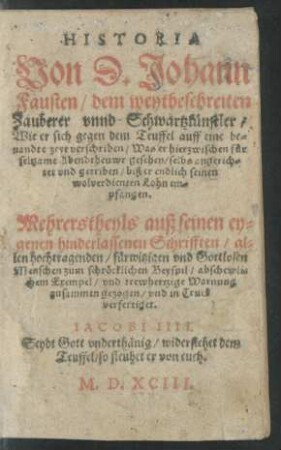 HISTORIA
Von D. Johann
Fausten / dem weytbeschreiten
Zauberer vnnd Schwartzkünstler /
Wie er sich gegen dem Teuffel auff eine be-
nandte zeyt verschriben / Was er hierzwischen für
seltzame Abendtheuwr gesehen / selbs angerich-
tet vnd getriben / biß er endtlich seinen
wolverdienten Lohn em-
pfangen.
Mehrerstheyls auß seinen ey-
genen hinderlassenen Schrifften / al-
len hochtragenden / fürwitzigen vnd Gottlosen
Menschen zum schröcklichen Beyspil / abschewli-
chem Exempel / vnd trewhertzige Warnung
zusammen gezogen / vnd in Truck
verfertiget.
IACOBI IIII.
Seydt Gott vnderthänig / widerstehet dem
Teuffel / so fleuhet er von euch.
M. D. XCIII.